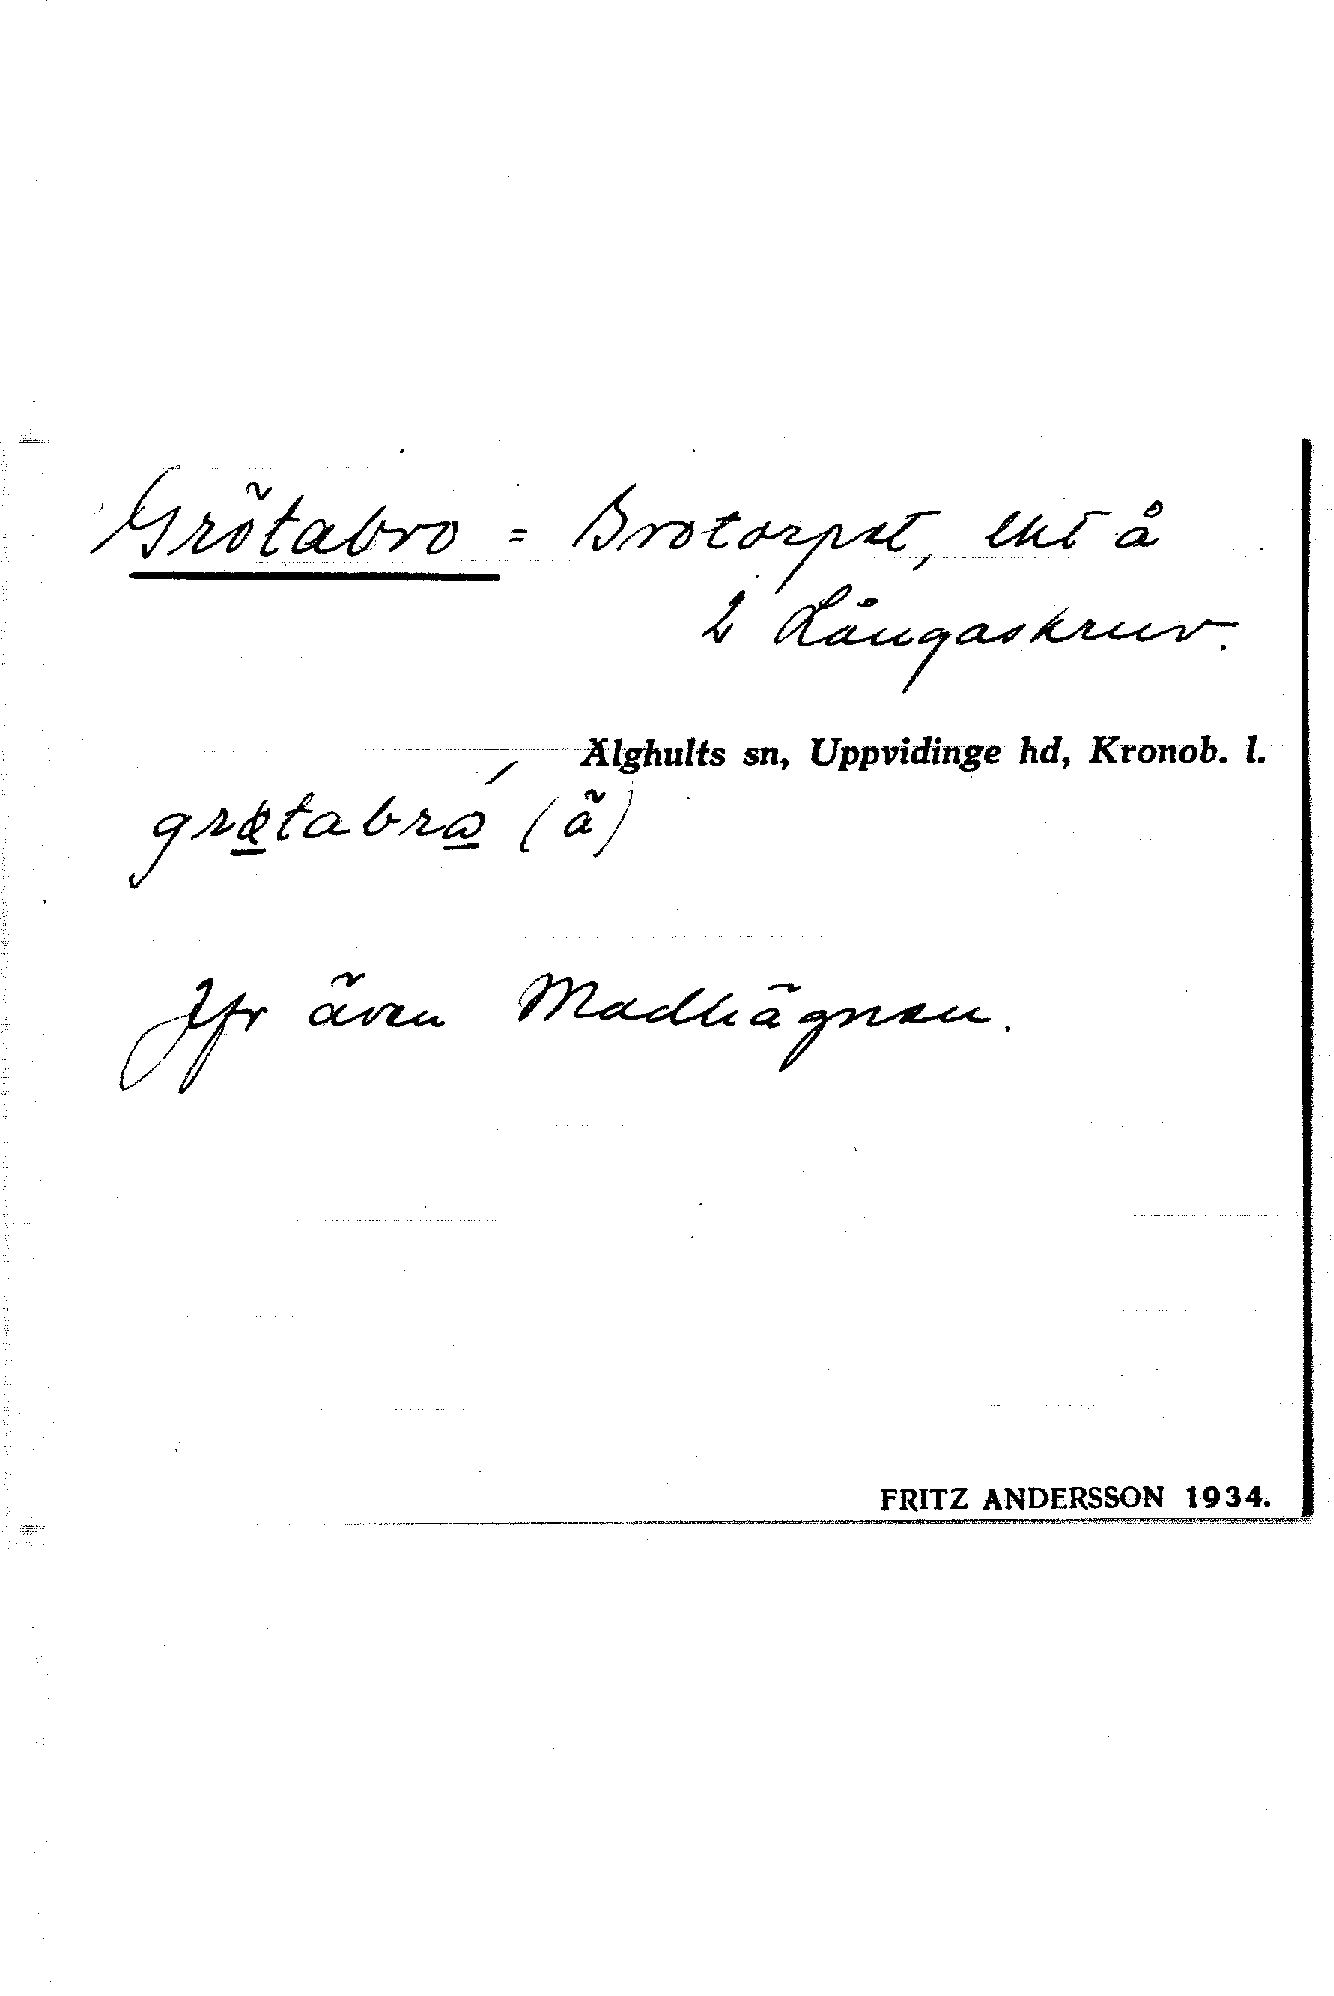 Grötabro = Brotorpet, lht å
2 Långaskruv.
Älghults sn, Uppvidinge hd, Kronob. l.
grøtabrώ (ä)
Jfr även Madhägnen.
FRITZ ANDERSSON 1934.